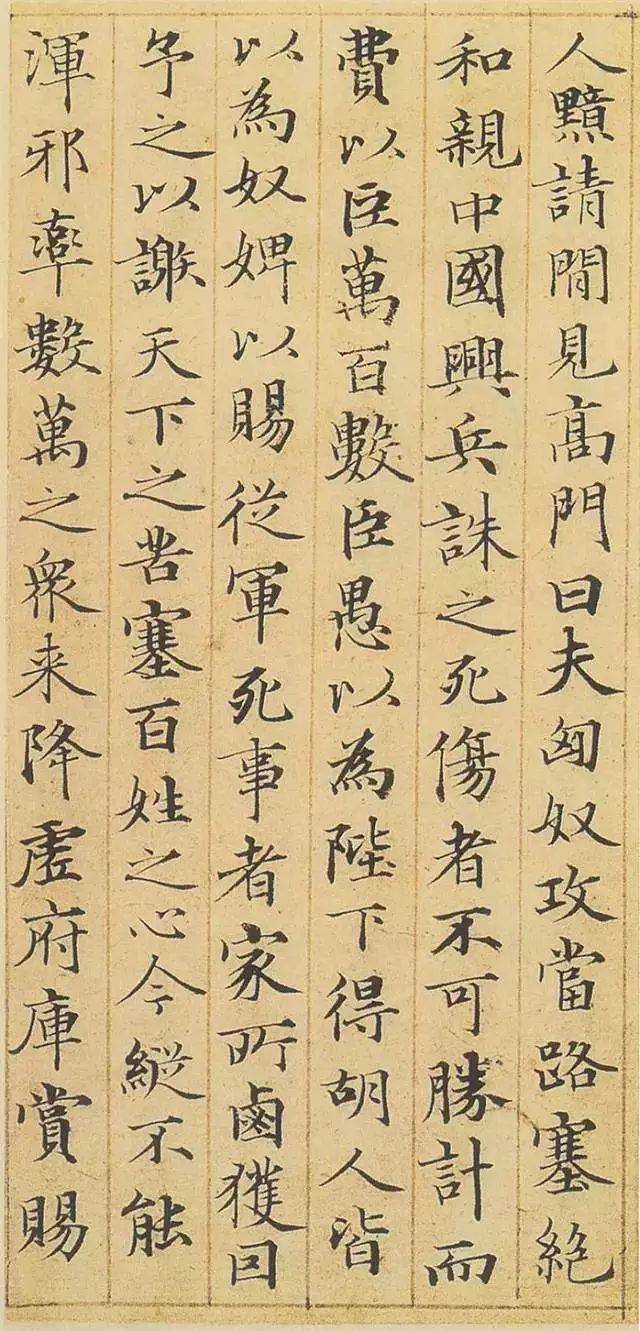 人黯請閒見髙門曰夫匈奴攻當路塞絶
和親中國興兵誅之死傷者不可勝計而
費以巨萬百數臣愚以為陛下得胡人皆
以為奴婢以賜從軍死事者家所鹵獲因
予之以謝天下之苦塞百姓之心今縱不能
渾邪率數萬之衆来降虛府庫賞賜